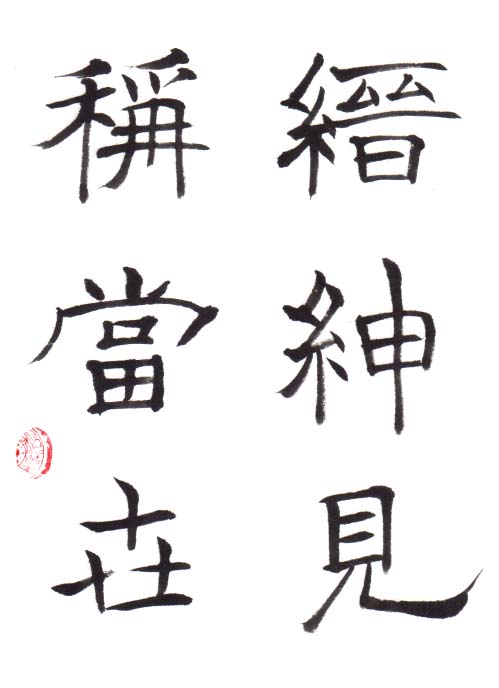 縉紳見
稱當卋